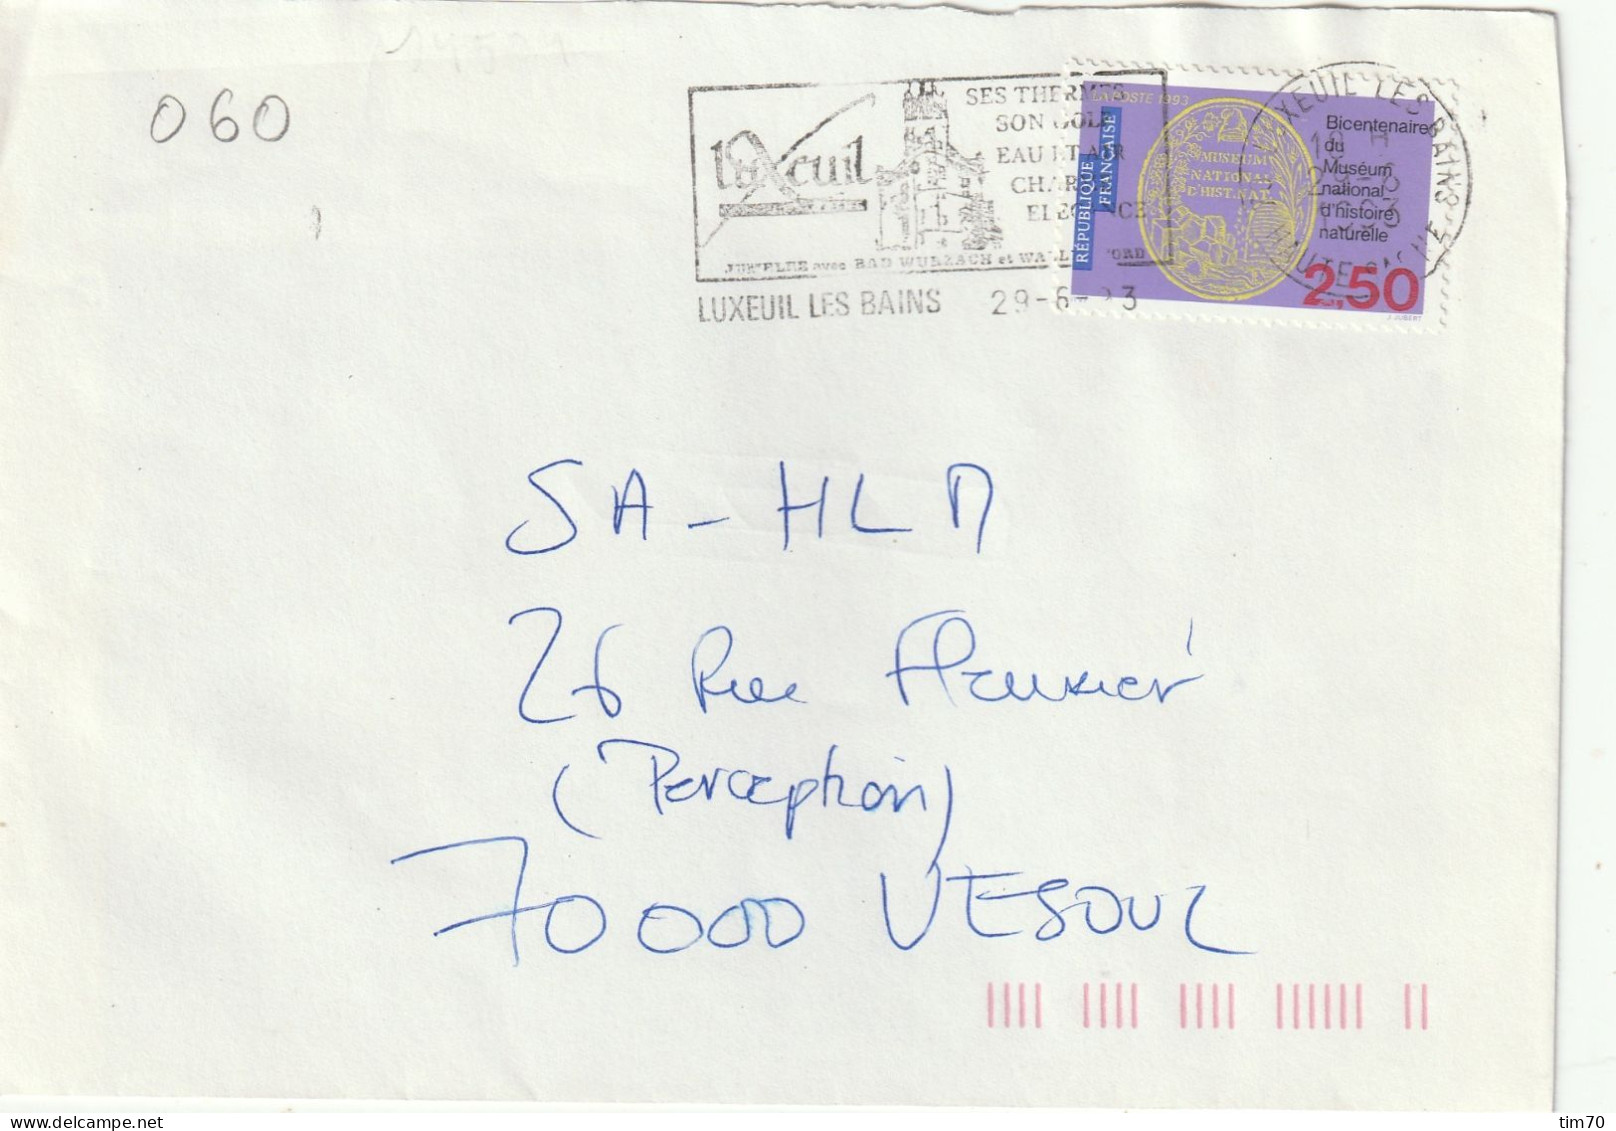 060
luxeuil
SES THERMES
SON GOLF
EAU ET AIR
CHARME
ELEGANCE
JUMELEE avec BAD WURZACH et
LUXEUIL LES BAINS 29-6-93
LUXEUIL LES BAINS
29-6
1993
HAUTE-SAONE
LA POSTE 1993
RÉPUBLIQUE
FRANÇAISE
MUSEUM
NATIONAL
D'HIST. NAT.
Bicentenaire
du
Muséum
national
d'histoire
naturelle
2,50
J. JUBERT
SA-HLM
26 Rue Fleurier
(Perception)
70000 VESOUL
tim70